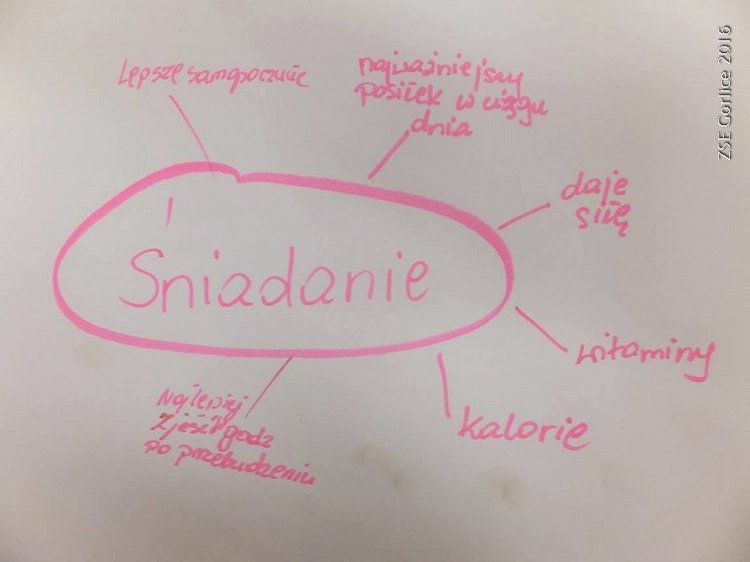 Lepsze samopoczucie
najważniejszy
posiłek w ciągu
dnia
daje
siłę
Śniadanie
witaminy
kalorie
Najlepiej
zjeść 1 godz
po przebudzeniu
ZSE Gorlice 2016